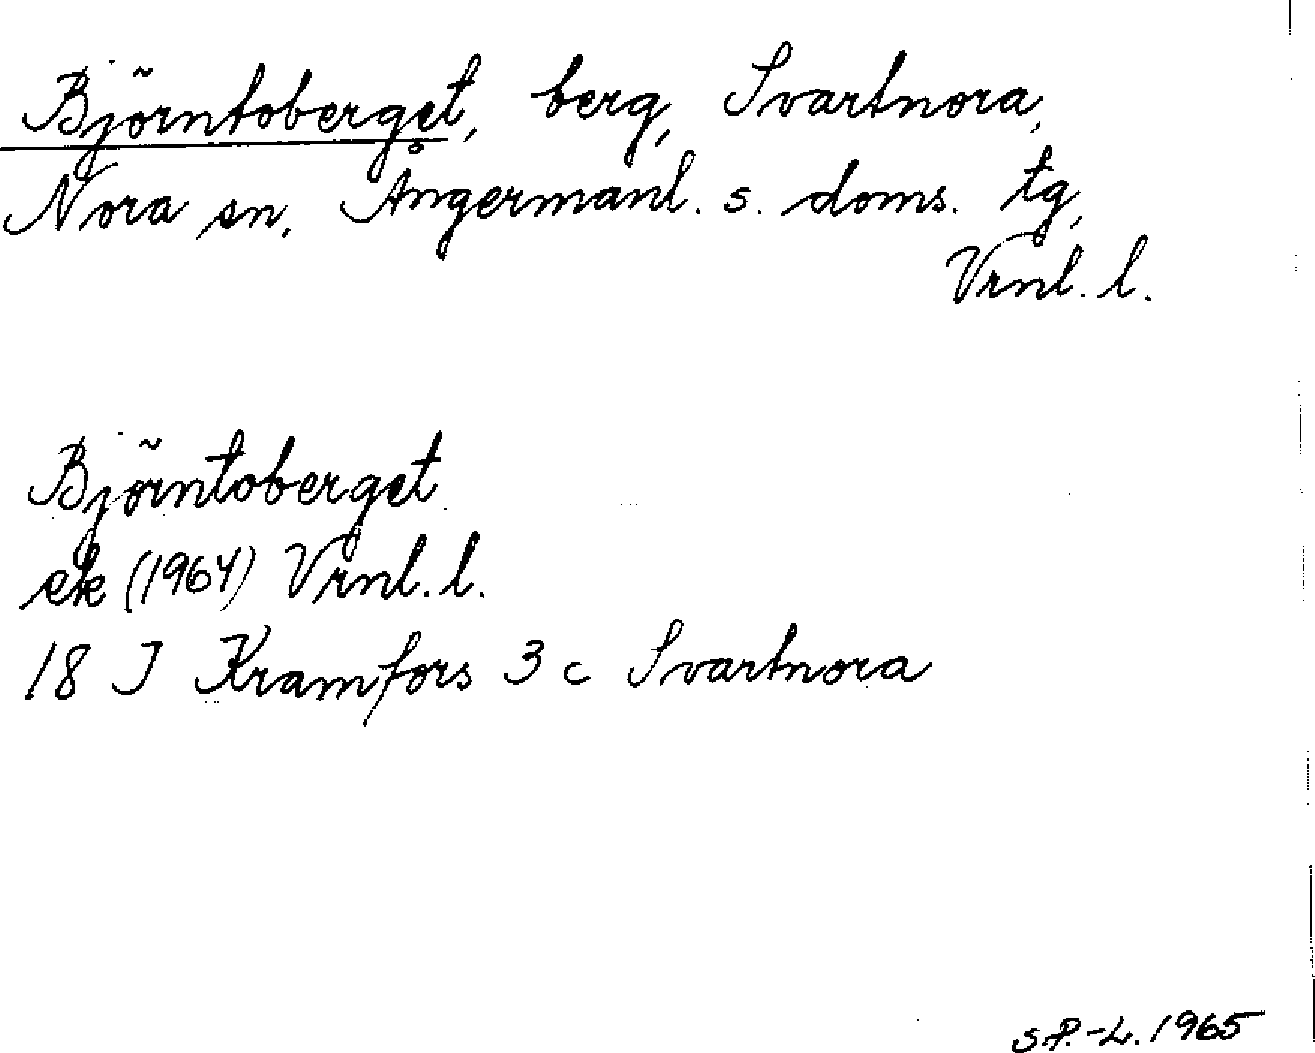 Björntoberget, berg, Svartnora,
Nora sn, Ångermanl. s. doms. tg,
Vrnl. l.
Björntoberget
ek (1964) Vrnl. l.
18 J Kramfors 3 c Svartnora
S.P.-L. 1965